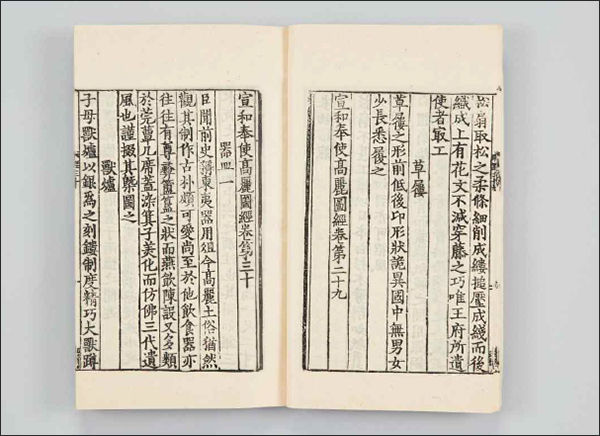 松扇取松之柔條細削成縷搥壓成綫而後
織成上有花文不減穿藤之巧唯王府所遺
使者最工
草屨
草屨之形前低後卬形狀詭異國中無男女
少長悉履之
宣和奉使高麗圖經卷第二十九
宣和奉使高麗圖經卷第三十
器皿一
臣聞前史稱東夷器用俎今高麗土俗猶然
觀其制作古朴頗可愛尚至於他飲食器亦
往往有尊彝簠簋之狀而燕飲陳設又多類
於莞簟几席蓋染箕子美化而仿佛三代遺
風也謹掇其槩圖之
獸爐
子母獸爐以銀爲之刻鏤制度精巧大獸蹲